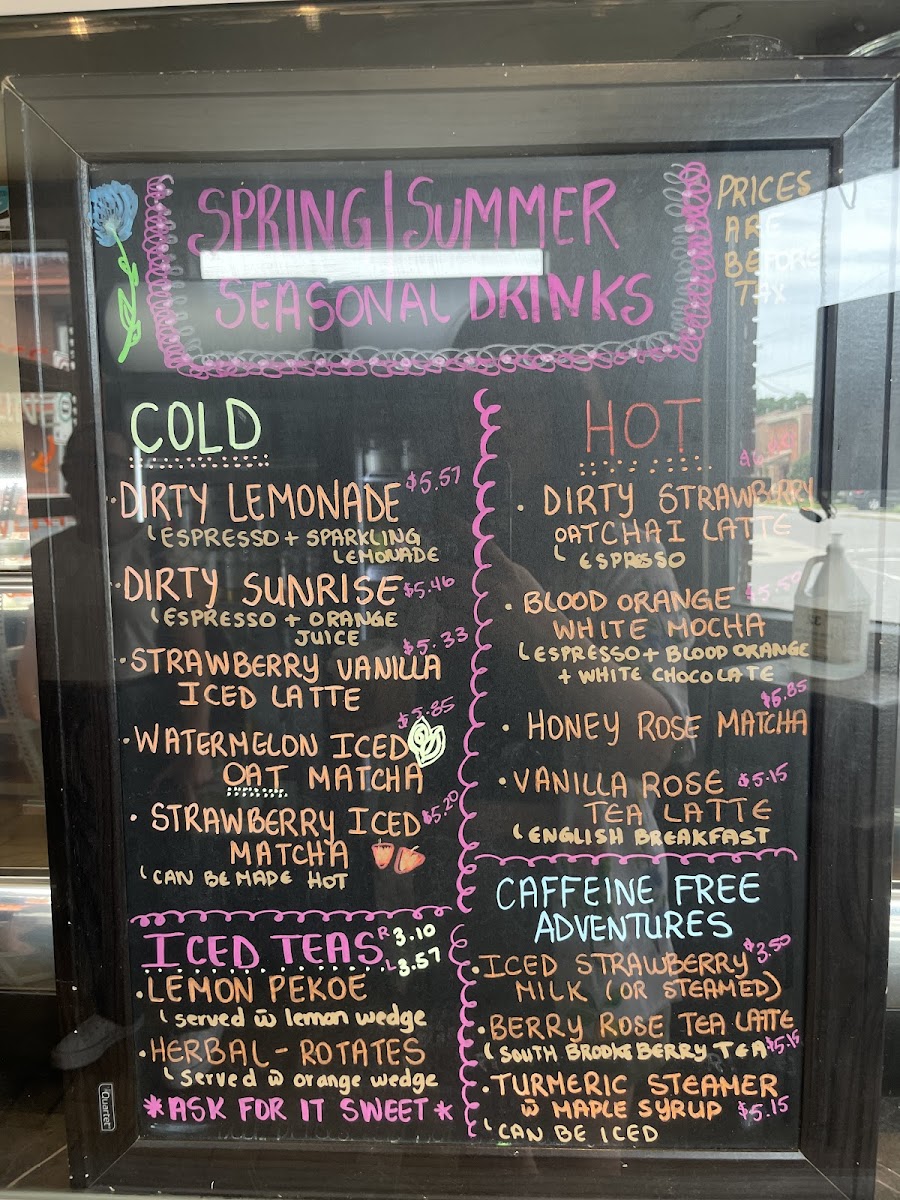 SPRING/SUMMER
SEASONAL DRINKS
PRICES
ARE
BEFORE
TAX
COLD
DIRTY LEMONADE $5.57
ESPRESSO + SPARKLING
LEMONADE
DIRTY SUNRISE $5.46
ESPRESSO + ORANGE
JUICE
$5.33
STRAWBERRY VANILLA
ICED LATTE
$5.85
WATERMELON ICED
OAT MATCHA
STRAWBERRY ICED $5.20
MATCHA
CAN BE MADE HOT
ICED TEAS R 3.10
L 3.57
LEMON PEKOE
served w̄ lemon wedge
HERBAL - ROTATES
served w̄ orange wedge
*ASK FOR IT SWEET*
HOT
DIRTY STRAWBERRY
OATCHAI LATTE
ESPRESSO
BLOOD ORANGE
WHITE MOCHA
ESPRESSO + BLOOD ORANGE
+ WHITE CHOCOLATE
$5.85
HONEY ROSE MATCHA
VANILLA ROSE $5.15
TEA LATTE
ENGLISH BREAKFAST
CAFFEINE FREE
ADVENTURES
ICED STRAWBERRY $3.50
MILK (OR STEAMED)
BERRY ROSE TEA LATTE
SOUTH BROOKE BERRY TEA $5.15
TURMERIC STEAMER
w̄ MAPLE SYRUP $5.15
CAN BE ICED
Quartet